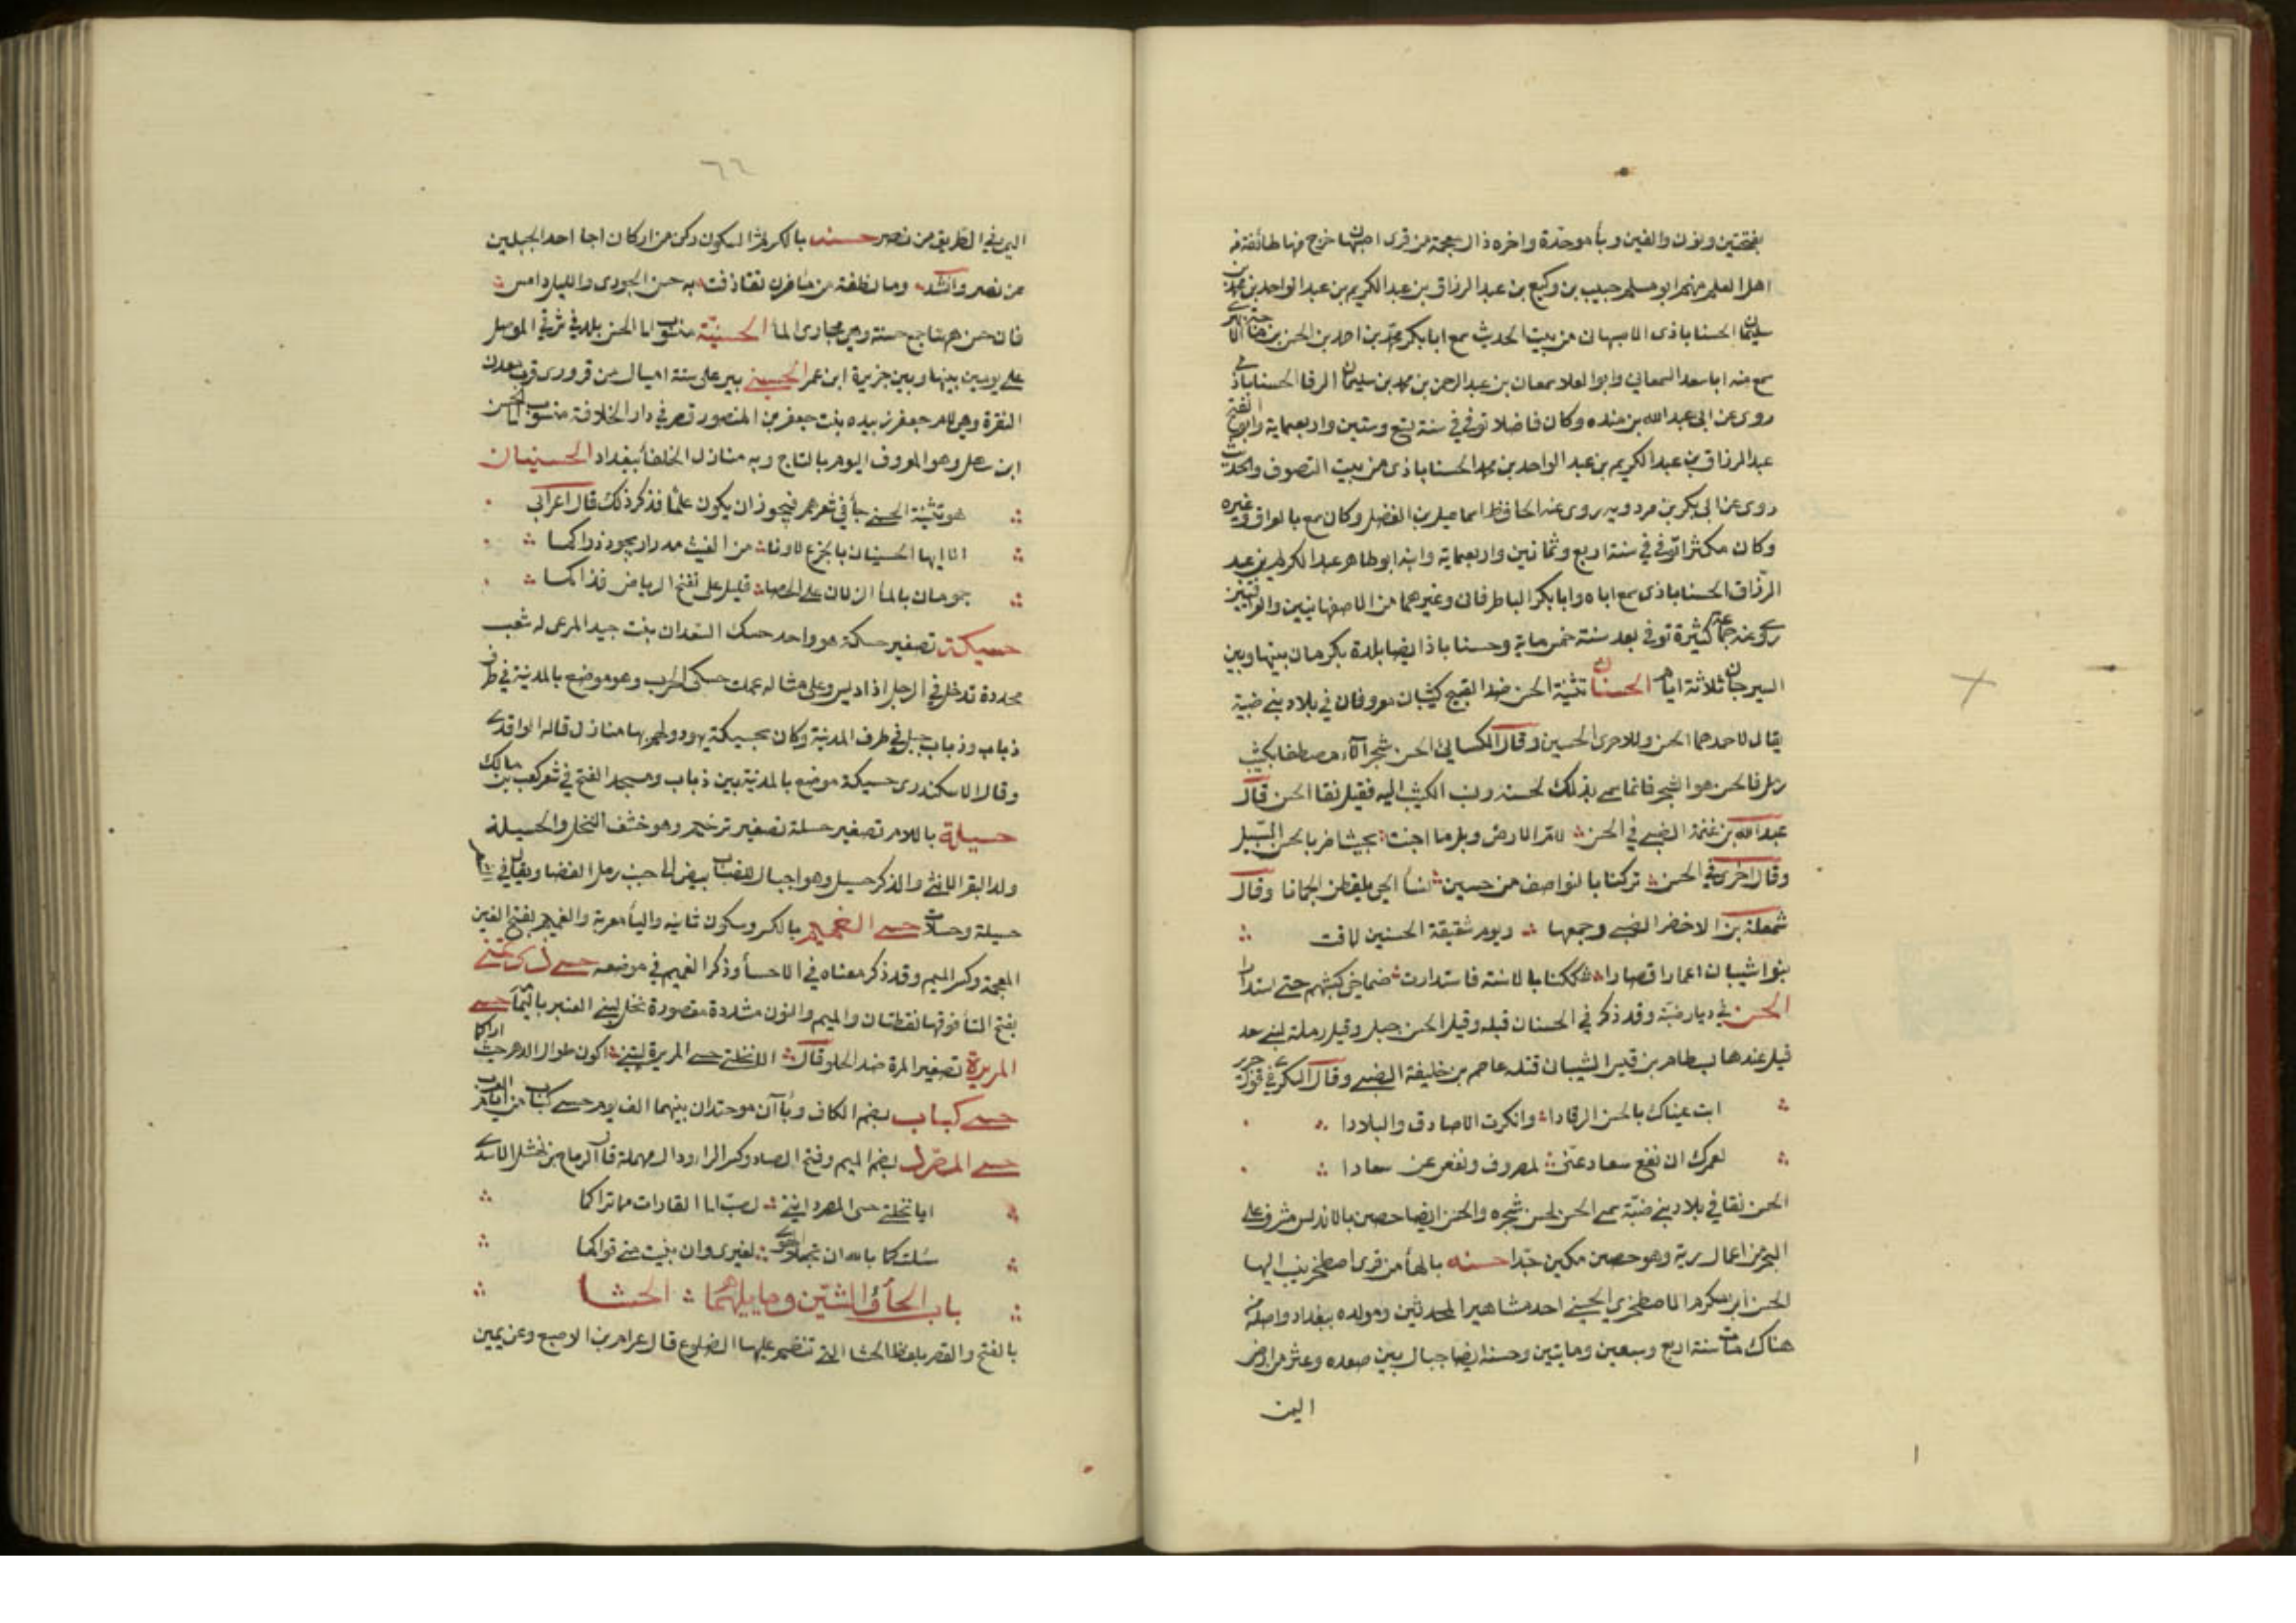 بفتحتين ونون والفين وبأ موحدة واخره ذال معجمة من قرى اصبهان خرج منها طائفة من
اهل العلم منهم ابو مسلم حبيب بن وكيع بن عبد الرزاق بن عبد الكريم بن عبد الواحد بن محمد بن
سليمان الحسناباذى الاصبهانى من بيت الحديث سمع ابا بكر محمد بن احمد بن الحسن بن
سمع منه ابا سعد السمعانى وابو العلا سمعان بن عبد الرحمن بن محمد بن سليمان الرفا الحسناباذى
روى عن ابى عبد الله بن منده وكان فاضلا توفى فى سنة تسع وستين واربعماية وابو الفتح
عبد الرزاق بن عبد الكريم بن عبد الواحد بن محمد الحسناباذى من بيت التصوف والحديث
روى عن ابى بكر بن مردويه روى عنه الحافظ اسماعيل بن الفضل وكان سمع بالعراق وغيره
وكان مكثرا توفى فى سنة اربع وثمانين واربعماية وابنه ابو طاهر عبد الكريم بن عبد
الرزاق الحسناباذى سمع اباه وابا بكر الباطرقانى وغيرهما من الاصفهانيين والعراقيين
روى عنه جماعة كثيرة توفى بعد سنة خمس ماية وحسناباذ ايضا بلدة بكرمان بينها وبين
السيرجان ثلاثة ايام الحسنان تثنية الحسن ضد القبيح كثيبان معروفان فى بلاد بنى ضبة
يقال لاحدهما الحسن وللاخرى الحسين وقال الكسائى الحسن شجر الآء مصطفا بكثيب
رمل فالحسن هو الشجر فانما سمى بذلك لحسنه ونسب الكثيب اليه فقيل نقا الحسن قال
عبد الله بن غنمة الضبى فى الحسن لام الارض ويل ما اجنت بحيث اضر بالحسن السبيل
وقال اخر فى الحسن تركنا بالنواصف من حسين نسأ الحى يلقطن الجمانا وقال
شمعلة بن الاخضر الضبى وجمعها ويوم شقيقة الحسنين لاقت
بنوا شيبان اعمارا قصارا شككنا بالاسنة فاستدارت ضماخى كبشهم حتى استدارا
الحسن فى ديار ضبة وقد ذكر فى الحسنان قبله وقيل الحسن جبل وقيل رملة لبنى سعد
قيل عندها بسطام بن قيس الشيبانى قتله عاصم بن خليفة الضبى وقال السكرى فى قول جرير
ابت عيناك بالحسن الرقادا وانكرت الاصادق والبلادا
لعمرك ان نفع سعاد عنى لمصروف ونفعى عن سعادا
الحسن نقا فى بلاد بنى ضبة سمى الحسن لحسن شجره والحسن ايضا حصن بالاندلس مشرف على
البحر من اعمال رية وهو حصين مكين جدا حسنه بالهأ من قرى اصطخر ينسب اليها
الحسن بن مكرم الاصطخرى الحسنى احد مشاهير المحدثين ومولده ببغداد واصله من
هناك مات سنة اربع وسبعين ومايتين وحسنة ايضا جبال بين صعده وعثر من ارض
اليمن
٦٦
اليمن فى الطريق من نصر حسنه بالكسر ثم السكون ركن من اركان اجا احد الجبلين
من نصر وانشد وما نطفة من مآ مزن تقاذفت به حسن الجودى والليل دامس
فان حسن ههنا جمع حسنة وهى مجارى المأ الحسنية منسوب الى الحسن بلد فى شرقى الموصل
على يومين بينها وبين جزيرة ابن عمر الحسينى بير على ستة اميال من قرورى قرب معدن
النقرة وهى لام جعفر زبيده بنت جعفر بن المنصور قصر فى دار الخلافة منسوب الى الحسن
ابن سهل وهو المعروف اليوم بالتاج وبه منازل الخلفأ ببغداد الحسنيان
هو تثنية الحسنى جأ فى شعرهم فيجوز ان يكون علما فذكر ذلك قال اعرابى
الا ايها الحسنيان بالجزع لا ونا من الغيث مدرار يجود ذراكما
جمومان بالمأ الزلال على الحصا قليل على نفح الرياض قذاكما
حسيكة تصغير حسكة هو واحد حسك السعدان بنت جيد المرعى له شعب
محددة تدخل فى الرجل اذا ديس وعلى مثاله عملت حسك الحرب وهو موضع بالمدينة فى طرف
ذباب وذباب جبل فى طرف المدينة وكان بحسيكة يهود ولهم بها منازل قاله الواقدى
وقال الاسكندرى حسيكة موضع بالمدينة بين ذباب ومسجد الفتح فى شعر كعب بن مالك
حسيلة باللام تصغير حسلة تصغير ترخيم وهو خشف النخل والحسيلة
ولد البقر الانثى والذكر حسيل وهو اجبال للضباب بيض الى جنب رمل الغضا ويقال فى
حسيلة وحسلات حسى الغميم بالكسر وسكون ثانيه واليأ معربة والغميم بفتح الغين
المعجمة وكسر الميم وقد ذكر معناه فى الاحسأ وذكر الغميم فى موضعه حسى ذى تمنى
بفتح التأ فوقها نقطتان والميم والنون مشددة مقصورة نخل لبنى العنبر باليمامة حسى
المريرة تصغير المرة ضد الحلو قال الا نخلتى حسى المريرة ليتنى اكون طوال الدهر حيث اراكما
حسى كباب بضم الكاف وبأآن موحدتان بينهما الف يوم حسى كباب من ايام العرب
حسى المصرد بضم الميم وفتح الصاد وكسر الرا ودال مهملة قال الرماح بن نهشل الاسدى
ايا نخلتى حسى المصرد اننى لصب الى القارات مما تراكما
سالتكما بالله ان تجعلا الهوى لغيرى وان بنيت منى قواكما
باب الحأ والشين وما يليهما الحشا
بالفتح والقصر بلفظ الحشا التى تنضم عليها الضلوع قال عرام بن الاصبع وعن يمين